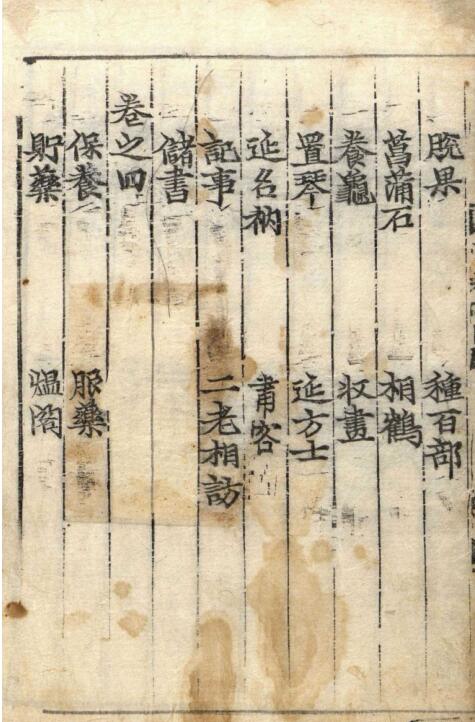 脘果　種百部
菖蒲石　相鶴
養龜　收畫
置琴　延方士
延名衲　肅客
記事　二老相訪
儲書
卷之四
保養　服藥
貯藥　煴閣